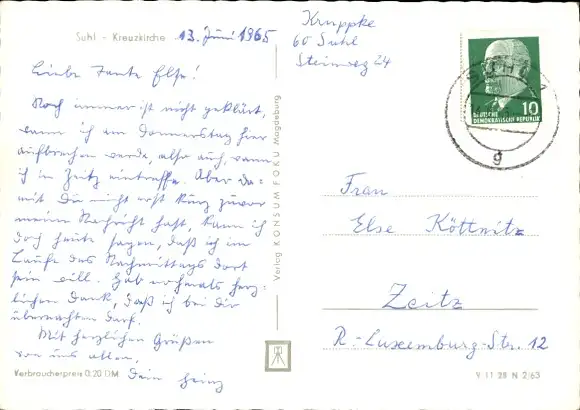 Suhl - Kreuzkirche 13. Juni 1965
Liebe Tante Else!
Noch immer ist nicht geklärt,
wann ich am Donnerstag hier
aufbrechen werde, also auch, wann
ich in Zeitz eintreffe. Aber da-
mit Du nicht erst kurz zuvor
meine Nachricht hast, kann ich
doch heute sagen, daß ich im
Laufe des Nachmittags dort
sein will. Hab nochmals herz-
lichen Dank, daß ich bei Dir
übernachten darf.
Mit herzlichen Grüßen
von uns allen,
Dein Heinz
Verbraucherpreis 0,20 DM
Verlag KONSUM FOKU Magdeburg
Kruppke
60 Suhl
Steinweg 24
10
DEUTSCHE
DEMOKRATISCHE REPUBLIK
SUHL 1
g
Frau
Else Köttnitz
Zeitz
R.-Luxemburg-Str. 12
V 11 28 N 2/63